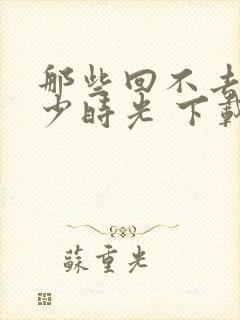 那些回不去
少時光 下載
蘇童光